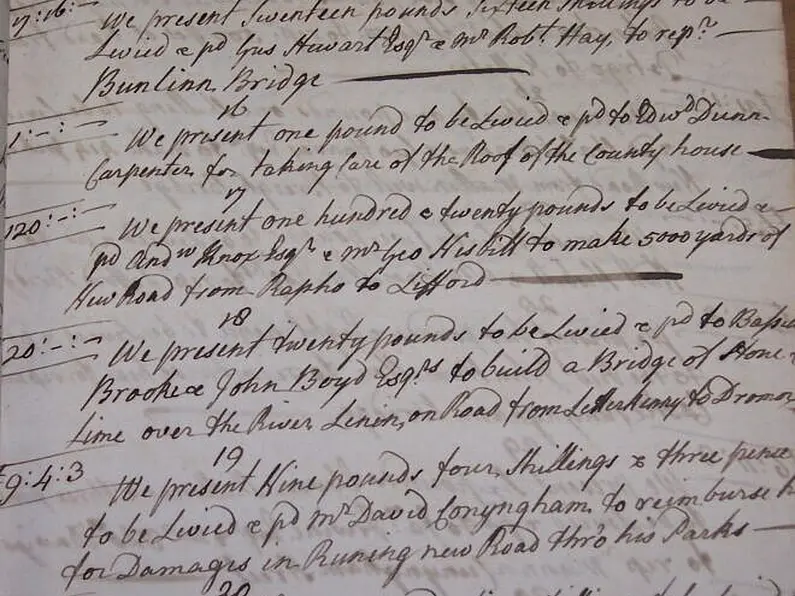 17:16:- We present Seventeen pounds Sixteen Shillings to be
Levied & pd Gus Stewart Esqr & Mr Robt. Hay, to repr.
Bunlinn Bridge
16
1:-:- We present one pound to be Levied & pd to Edwd Dunn
Carpenter, for taking Care of the Roof of the County house
17
120:-:- We present one hundred & twenty pounds to be Levied &
pd Andw Knox Esqr & Mr Geo Nisbitt to make 5000 yards of
New Road from Rapho to Lifford
18
20:-:- We present twenty pounds to be Levied & pd to
Brooke & John Boyd Esqrs to build a Bridge of Stone &
Lime over the River Lenin, on Road from Letterkenny to
19
9:4:3 We present Nine pounds four Shillings & three pence
to be Levied & pd Mr David Conyngham to reimburse
for Damages in Runing new Road thro his Parks
20